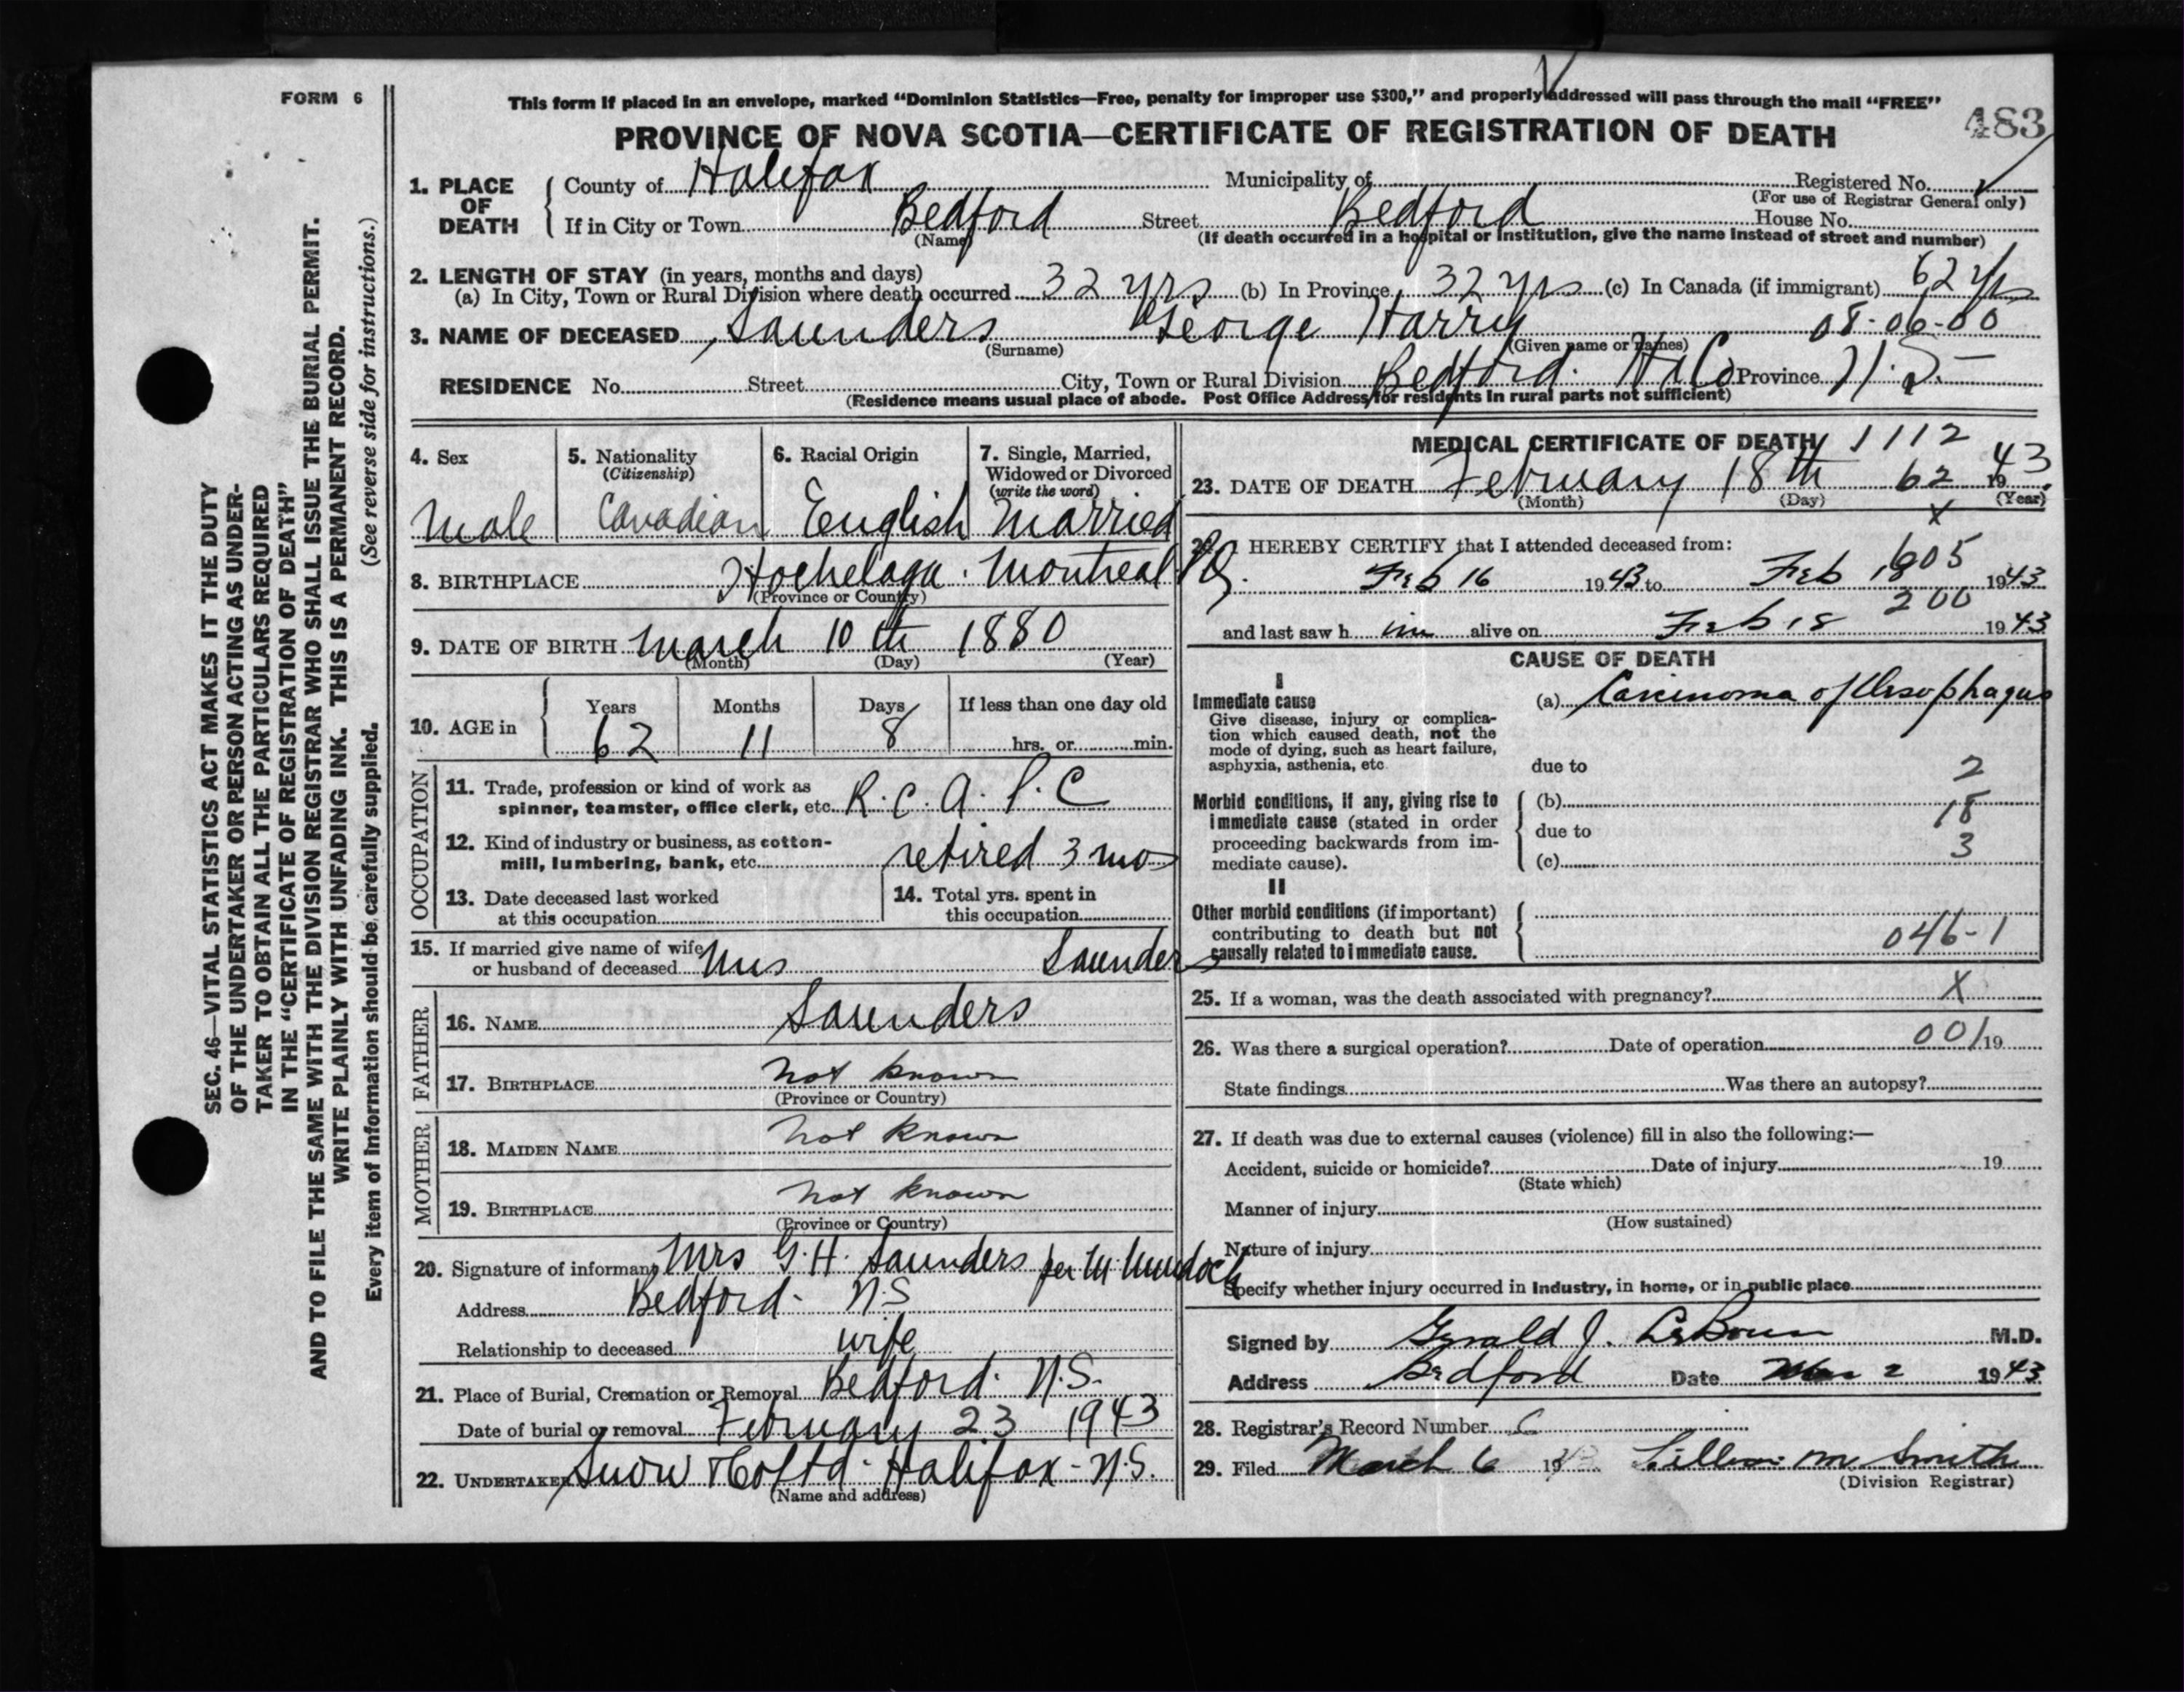 FORM 6
This form if placed in an envelope, marked “Dominion Statistics—Free, penalty for improper use $300,” and properly addressed will pass through the mail “FREE”
PROVINCE OF NOVA SCOTIA—CERTIFICATE OF REGISTRATION OF DEATH
483
1. PLACE OF DEATH
County of Halifax Municipality of Registered No.
(For use of Registrar General only)
If in City or Town Bedford Street Bedford House No.
(Name) (If death occurred in a hospital or institution, give the name instead of street and number)
2. LENGTH OF STAY (in years, months and days)
(a) In City, Town or Rural Division where death occurred 32 yrs (b) In Province 32 yrs (c) In Canada (if immigrant) 62 yrs
3. NAME OF DECEASED Saunders George Harry 08-06-00
(Surname) (Given name or names)
RESIDENCE No. Street City, Town or Rural Division Bedford. Hx Co Province N.S.
(Residence means usual place of abode. Post Office Address for residents in rural parts not sufficient)
4. Sex
Male
5. Nationality
(Citizenship)
Canadian
6. Racial Origin
English
7. Single, Married,
Widowed or Divorced
(write the word)
Married
8. BIRTHPLACE Hochelaga. Montreal P.Q.
(Province or Country)
9. DATE OF BIRTH March 10th 1880
(Month) (Day) (Year)
10. AGE in
Years Months Days If less than one day old
62 11 8 hrs. or min.
OCCUPATION
11. Trade, profession or kind of work as
spinner, teamster, office clerk, etc. R.C.A.S.C
12. Kind of industry or business, as cotton-
mill, lumbering, bank, etc. retired 3 mo
13. Date deceased last worked
at this occupation
14. Total yrs. spent in
this occupation
15. If married give name of wife
or husband of deceased Mrs Saunders
FATHER
16. NAME Saunders
17. BIRTHPLACE not known
(Province or Country)
MOTHER
18. MAIDEN NAME not known
19. BIRTHPLACE not known
(Province or Country)
20. Signature of informant Mrs G.H. Saunders per M. Murdoch
Address Bedford- N.S
Relationship to deceased wife
21. Place of Burial, Cremation or Removal Bedford. N.S.
Date of burial or removal February 23 1943
22. UNDERTAKER Snow & Co Ltd. Halifax-N.S.
(Name and address)
MEDICAL CERTIFICATE OF DEATH 1112
23. DATE OF DEATH February 18th 62 1943
(Month) (Day) (Year)
x
I HEREBY CERTIFY that I attended deceased from:
605
Feb 16 1943 to Feb 18 1943
200
and last saw h im alive on Feb 18 1943
CAUSE OF DEATH
I
Immediate cause
Give disease, injury or complica-
tion which caused death, not the
mode of dying, such as heart failure,
asphyxia, asthenia, etc
(a) Carcinoma of Oesophagus
due to 2
Morbid conditions, if any, giving rise to
immediate cause (stated in order
proceeding backwards from im-
mediate cause).
(b) 18
due to
(c) 3
II
Other morbid conditions (if important)
contributing to death but not
causally related to immediate cause.
046-1
25. If a woman, was the death associated with pregnancy? X
26. Was there a surgical operation? Date of operation 001 19
State findings Was there an autopsy?
27. If death was due to external causes (violence) fill in also the following:—
Accident, suicide or homicide? Date of injury 19
(State which)
Manner of injury
(How sustained)
Nature of injury
Specify whether injury occurred in Industry, in home, or in public place
Signed by Gerald J. M.D.
Address Bedford Date Mar 2 1943
28. Registrar's Record Number 6
29. Filed March 6 19 Lillian M. Smith
(Division Registrar)
SEC. 46—VITAL STATISTICS ACT MAKES IT THE DUTY
OF THE UNDERTAKER OR PERSON ACTING AS UNDER-
TAKER TO OBTAIN ALL THE PARTICULARS REQUIRED
IN THE “CERTIFICATE OF REGISTRATION OF DEATH”
AND TO FILE THE SAME WITH THE DIVISION REGISTRAR WHO SHALL ISSUE THE BURIAL PERMIT.
WRITE PLAINLY WITH UNFADING INK. THIS IS A PERMANENT RECORD.
Every item of information should be carefully supplied. (See reverse side for instructions.)